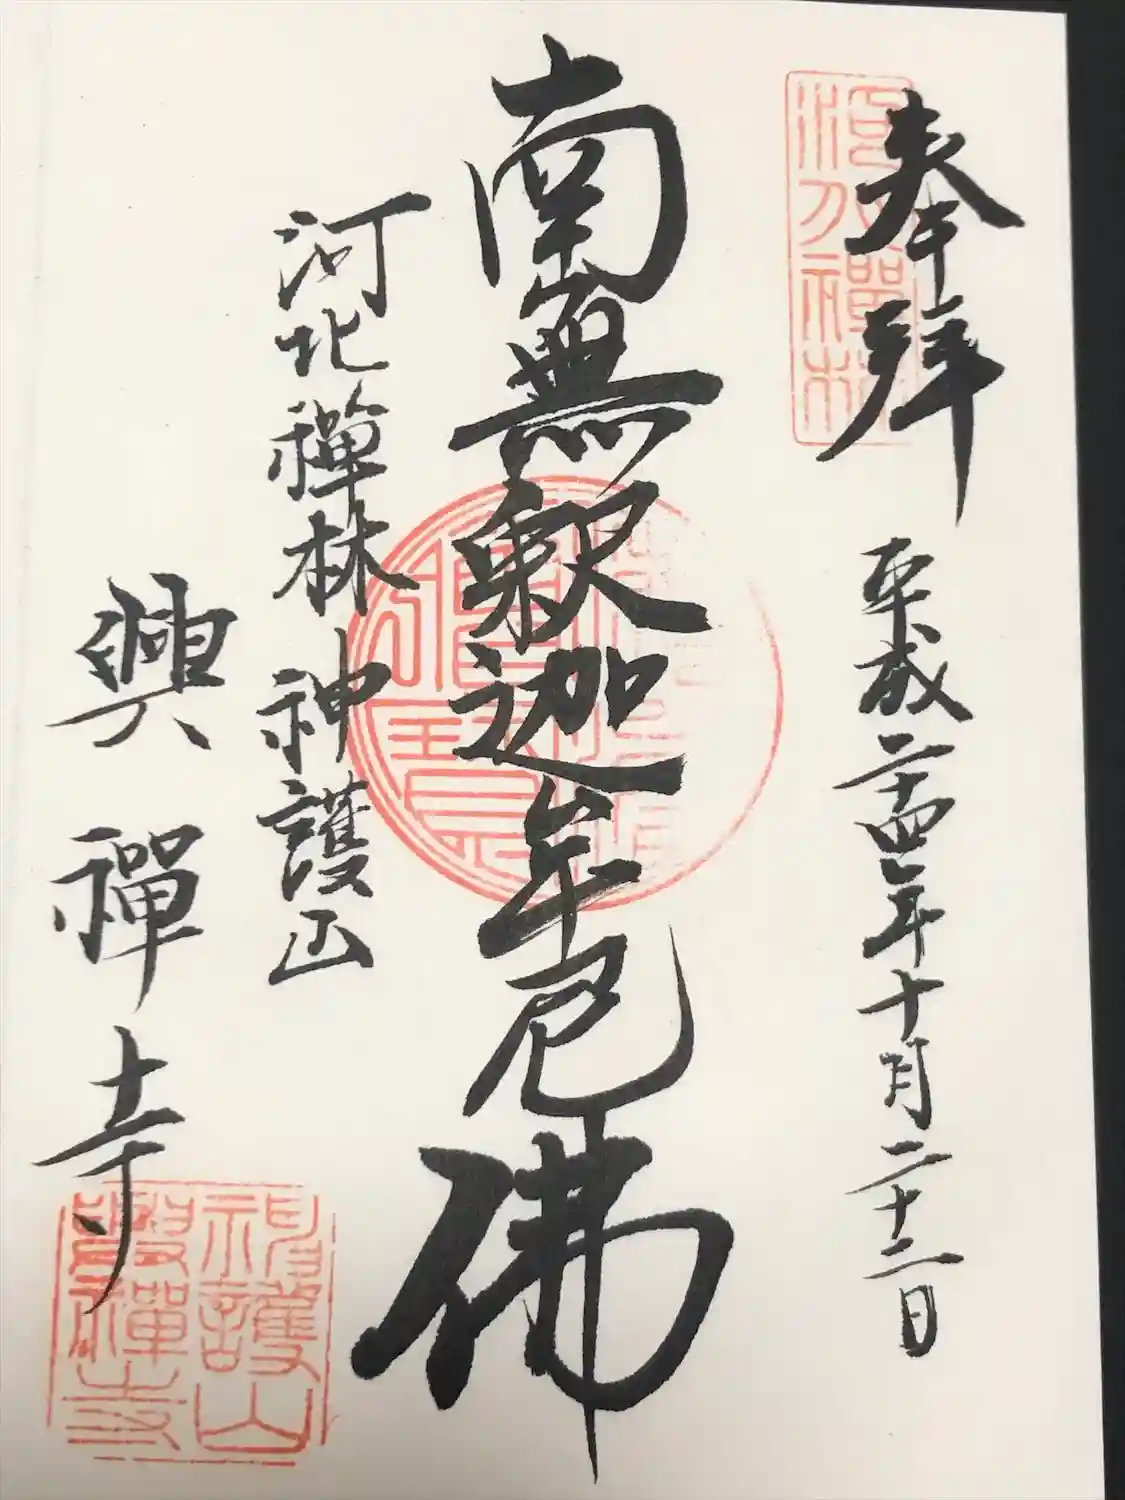 奉拜
平成二十四年十月二十二日
南無釈迦牟尼佛
河北禪林 神護山
興禪寺
河北禪林
佛法僧寶
神護山
興禪寺